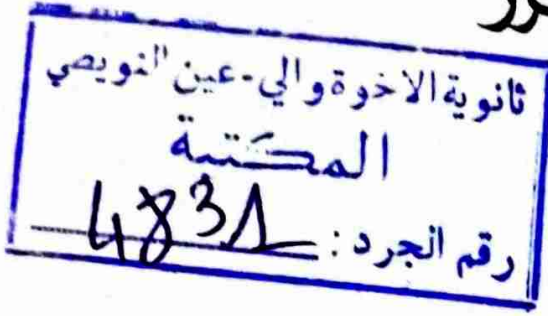 ثانوية الاخوة والي-عين النويصي
المكتبة
رقم الجرد: 4831